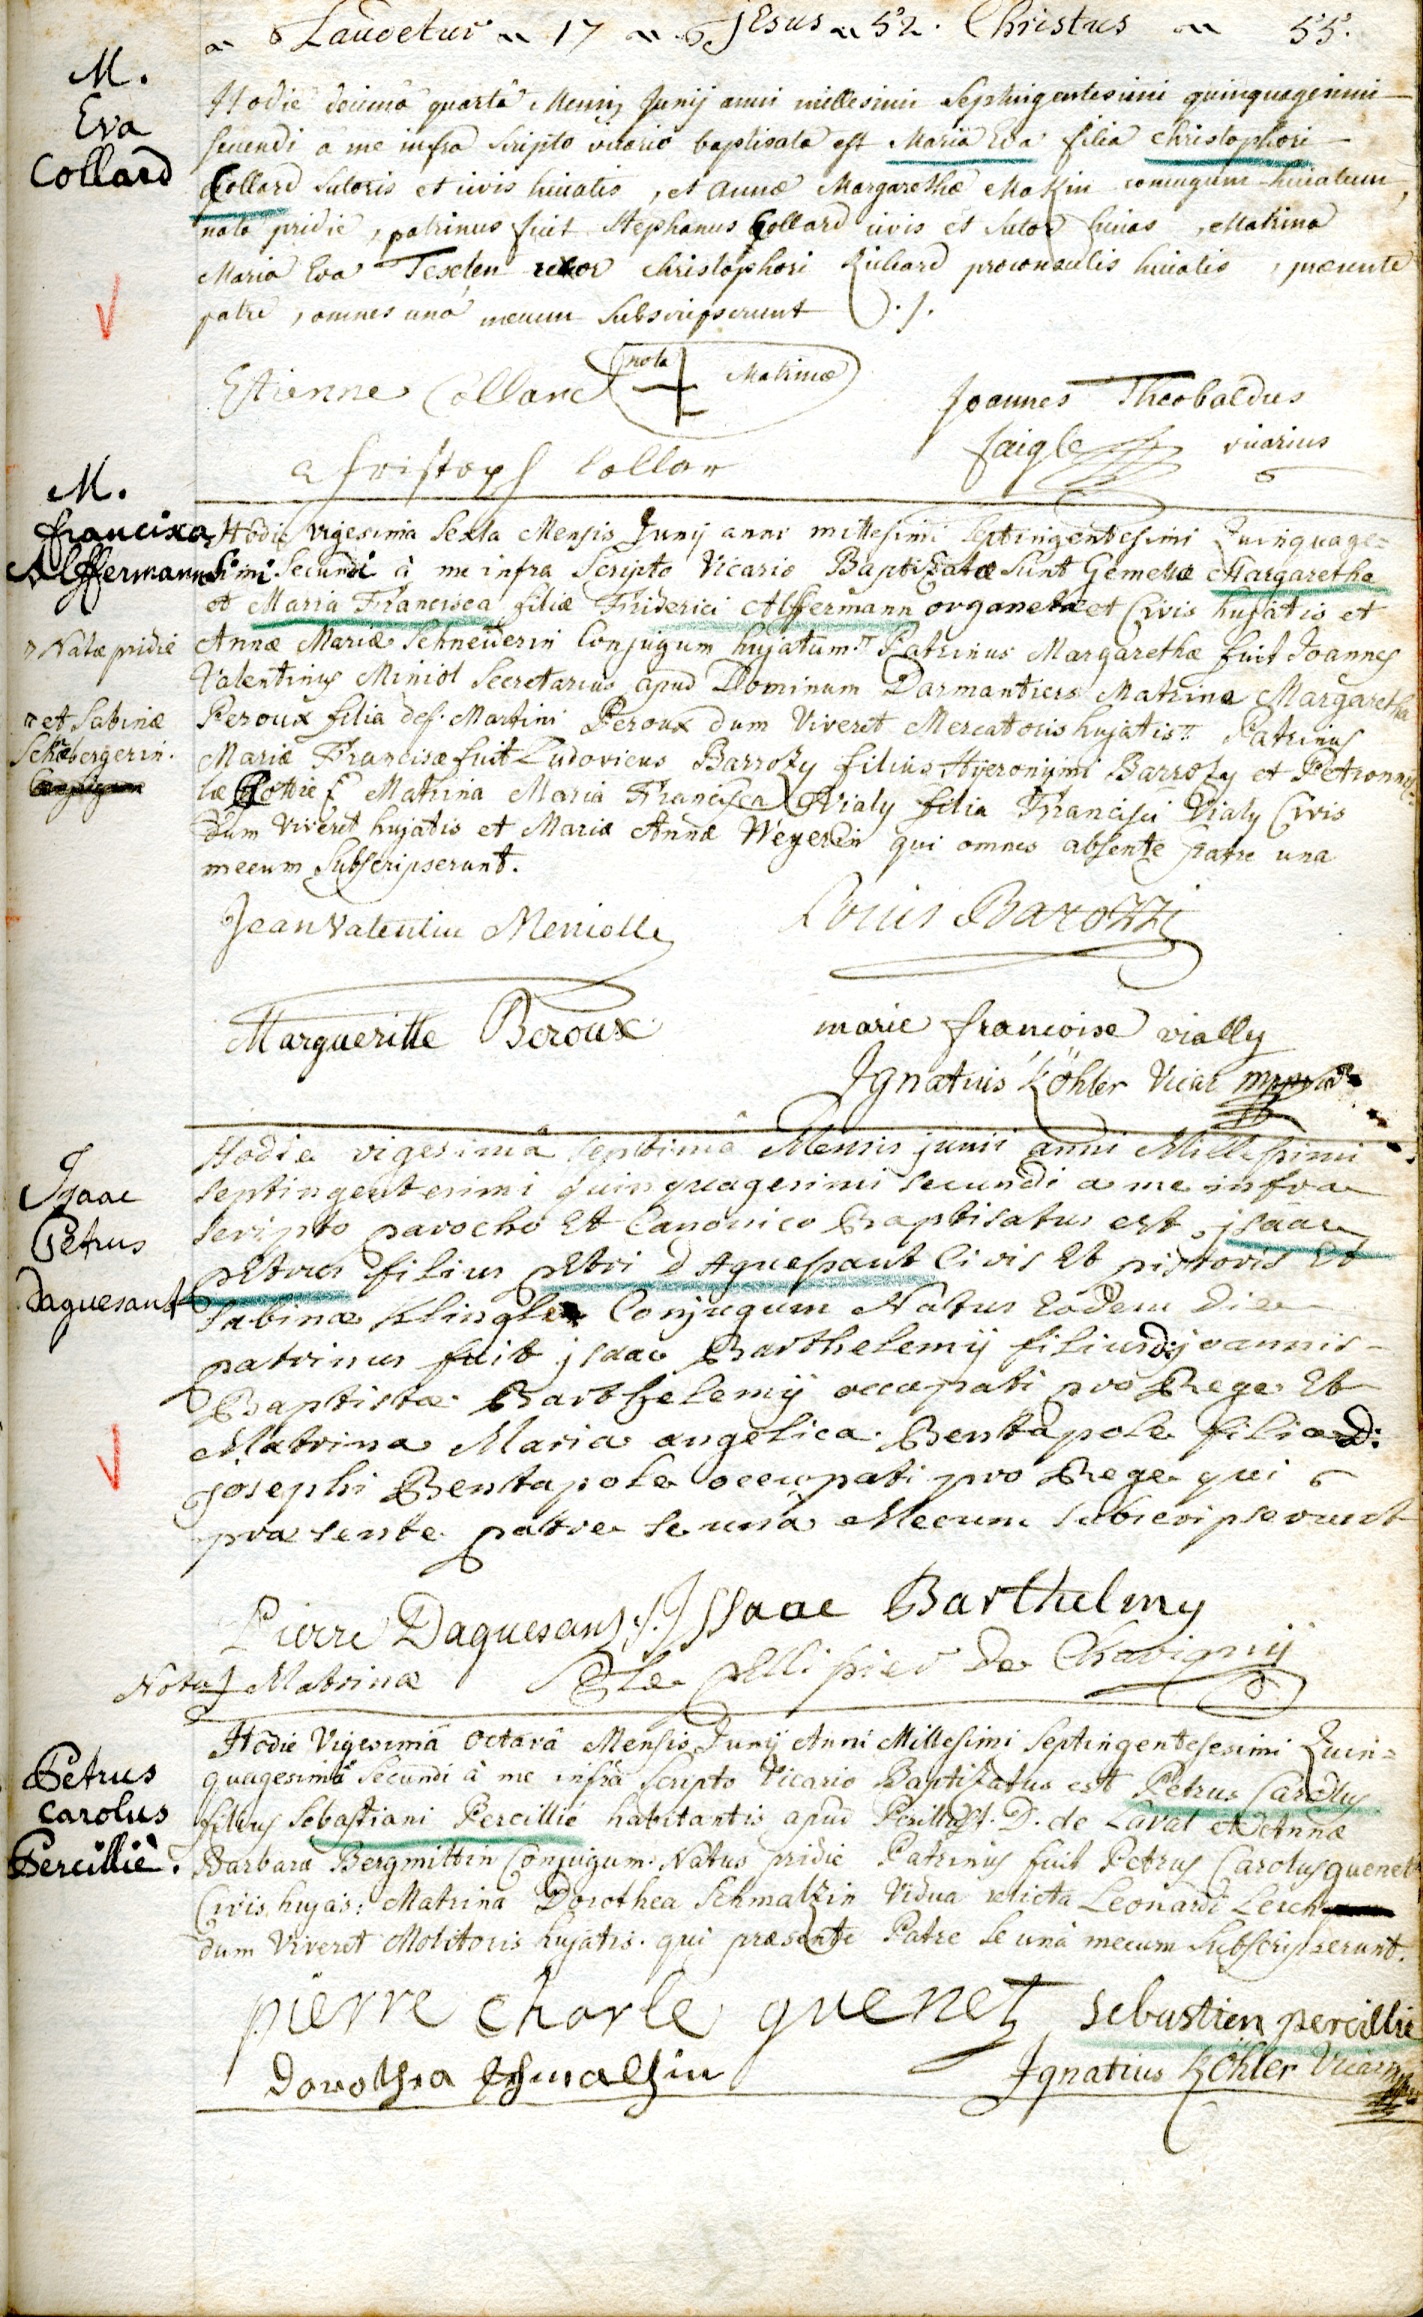 Laudetur 17 Jesus 52. Christus 55.
M.
Eva
Collard
Hodie decimâ quartâ Mensis Junij anni millesimi Septingentesimi quinquagesimi
secundi à me infra scripto vicario baptisata est Maria Eva filia Christophori
Collard sutoris et civis huiatis, et Annæ Margarethæ Makin coniugum huiatum,
nata pridie, patrinus fuit Stephanus Collard civis et sutor huias, Matrina
Maria Eva uxor Christophori proconsulis huiatis, præsente
patre, omnes unâ mecum subscripserunt
Etienne Collard nota Matrinæ
Joannes Theobaldus
faigle vicarius
Christoph Collar
M.
francisca
Alffermann
Hodie vigesima sexta Mensis Junij anni millesimi septingentesimi Quinquage=
simi Secundi à me infra Scripto Vicario Baptizatæ sunt Gemellæ Margaretha
et Maria Francisca filiæ Friderici Alffermann organetæ et Civis hujatis et
Natæ pridie
Annæ Mariæ Schneiderin Conjugum hujatum. Patrinus Margarethæ fuit Joannes
Valentinus Miniol Secretarius apud Dominum Darmantiers Matrina Margaretha
et Sabinæ
Peroux filia def. Martini Peroux dum Viveret Mercatoris hujatis. Patrinus
Mariæ Franciscæ fuit Ludovicus Barrozy filius Hyeronymi Barrozy et Petronnil
læ Matrina Maria Francisca Vialy filia Francisci Vialy Civis
dum Viveret hujatis et Mariæ Annæ Weyerin qui omnes absente Patre una
mecum subscripserunt.
Jean Valentin Meniolle
Louis Barozzi
Margueritte Beroux
marie francoise vially
Ignatius Köhler Vicar
Isaac
Petrus
Daguesant
Hodie vigesimâ septimâ Mensis junii anni Millesimi
septingentesimi quinquagesimi secundi a me infra
scripto parocho Et Canonico Baptisatus est jsaac
petrus filius petri d'Aguesant Civis Et pistoris Et
Sabinæ Klingler Conjugum Natus Eodem Die
patrinus fuit jsaac Barthelemÿ filius D: joannis
Baptistæ Barthelemÿ occupati pro Rege Et
Matrina Maria angelica Bentapole filia D:
josephi Bentapole occupati pro Rege qui
præsente patre se unà Mecum subscripserunt
Pierre Daguesan
Issaac Barthelmy
Nota Matrinæ
Le pellisier De Chavignÿ
Petrus
Carolus
Percilliè.
Hodie Vigesimâ octavâ Mensis Junij Anni Millesimi Septingentesesimi Quin=
quagesimi Secundi à me infra scripto Vicario Baptizatus est Petrus Carolus
filius Sebastiani Percillie habitantis apud Perillust. D. de Laval et Annæ
Barbara Bergmillin Conjugum. Natus pridie Patrinus fuit Petrus Carolus guenet
Civis hujas: Matrina Dorothea Schmaltzin Vidua relicta Leonardi Lerch
dum Viveret Molitoris hujatis. qui præsente Patre se unà mecum subscripserunt.
pierre charle guenet
sebastien percillie
Dorothea Schmaltzin
Ignatius Köhler Vicar